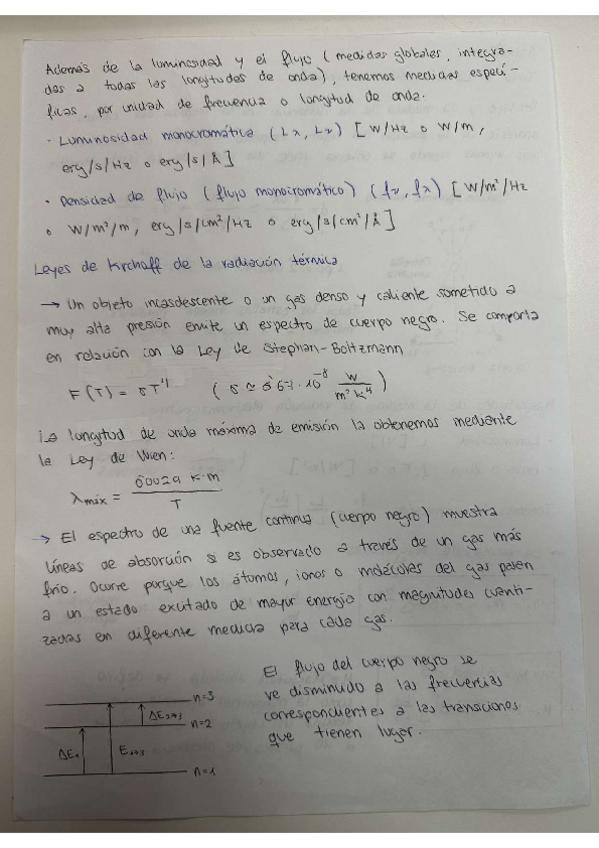 Además de la luminosidad y el flujo (medidas globales, integra-
das a todas las longitudes de onda), tenemos medidas especí-
ficas, por unidad de frecuencia o longitud de onda.
· Luminosidad monocromática (Lλ, Lν) [W/Hz o W/m,
erg/s/Hz o erg/s/Å]
· Densidad de flujo (flujo monocromático) (fν, fλ) [W/m²/Hz
o W/m²/m, erg/s/cm²/Hz o erg/s/cm²/Å]
Leyes de Kirchoff de la radiación térmica
→ Un objeto incasdescente o un gas denso y caliente sometido a
muy alta presión emite un espectro de cuerpo negro. Se comporta
en relación con la Ley de Stephan-Boltzmann
F(T) = σT⁴ (σ ≃ 5'67·10⁻⁸ W/m²K⁴)
La longitud de onda máxima de emisión la obtenemos mediante
la Ley de Wien:
λmáx = 0'0029 K·m / T
→ El espectro de una fuente continua (cuerpo negro) muestra
líneas de absorción si es observado a través de un gas más
frío. Ocurre porque los átomos, iones o moléculas del gas pasen
a un estado excitado de mayor energía con magnitudes cuanti-
zadas en diferente medida para cada gas.
El flujo del cuerpo negro se
ve disminuido a las frecuencias
correspondientes a las transiciones
que tienen lugar.
n=3
ΔE2→3
n=2
E1→3
n=1